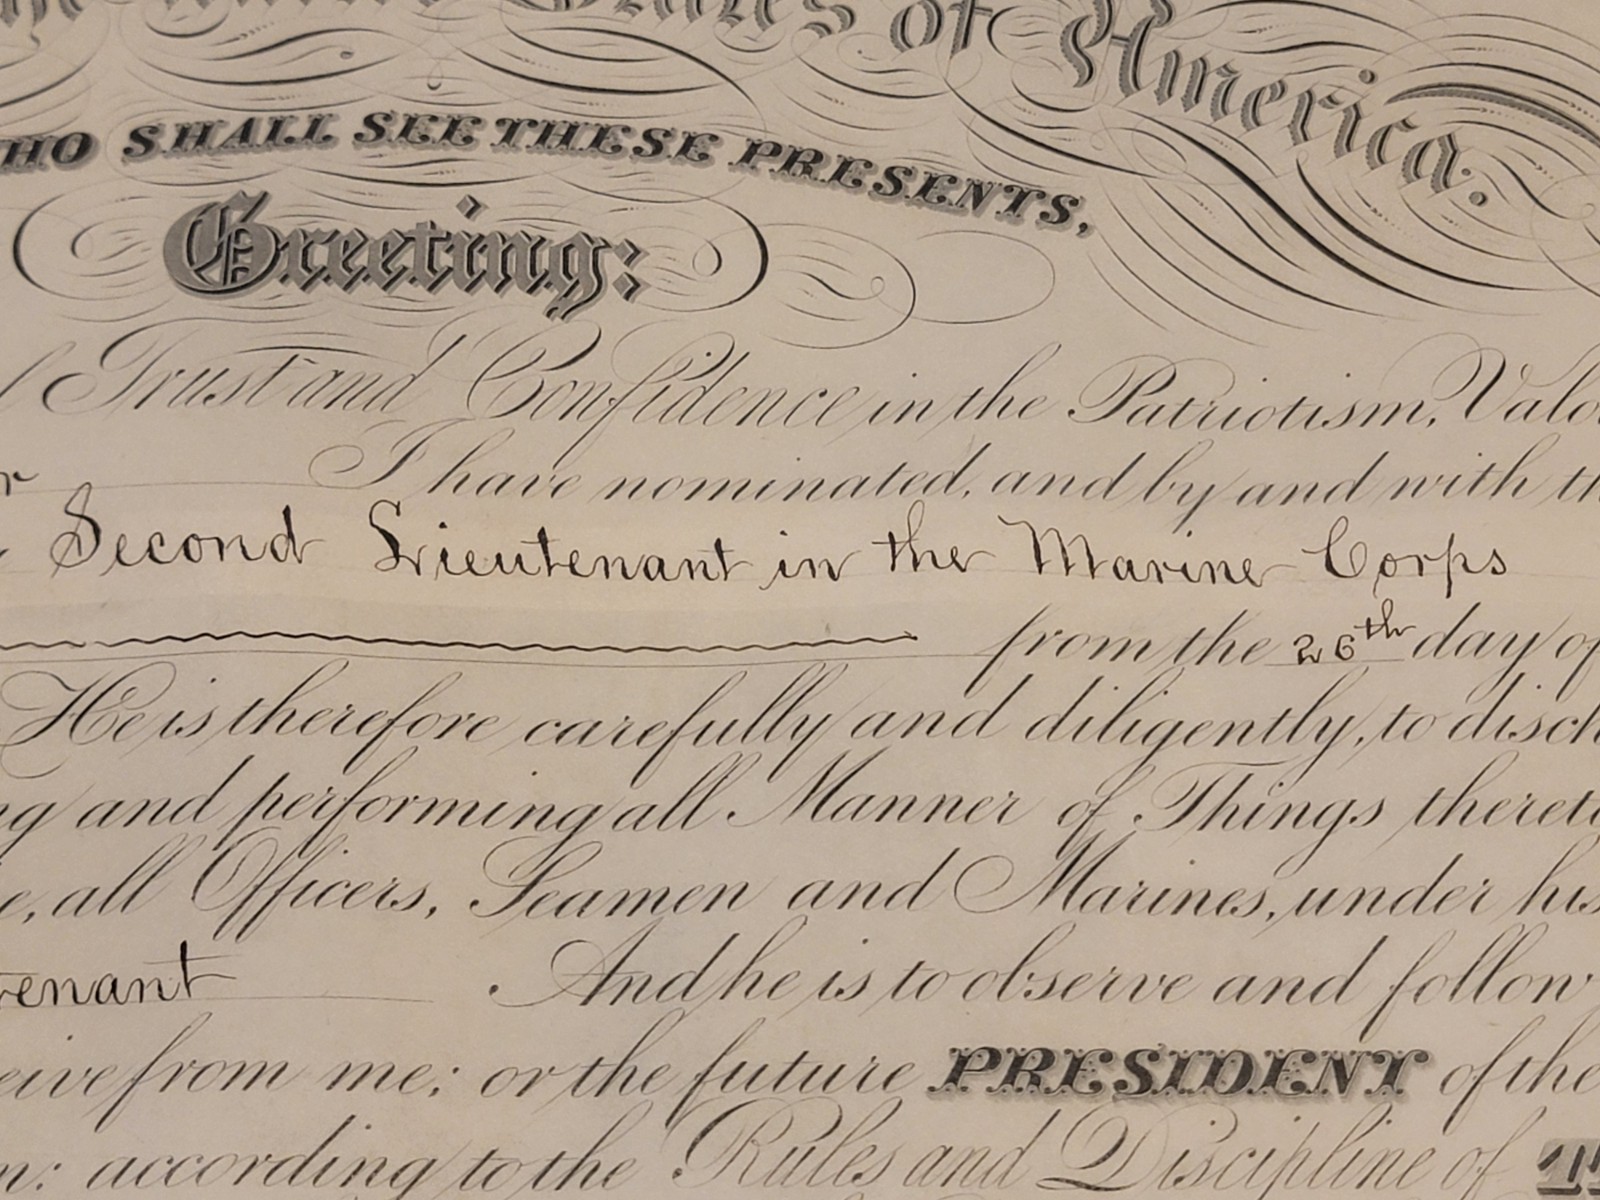 United States of America.
HO SHALL SEE THESE PRESENTS,
Greeting:
Trust and Confidence in the Patriotism, Valo
I have nominated, and by and with th
Second Lieutenant in the Marine Corps
from the 26th day of
He is therefore carefully and diligently, to disch
ng and performing all Manner of Things thereto
e, all Officers, Seamen and Marines, under his
tenant . And he is to observe and follow
eive from me; or the future PRESIDENT of the
n: according to the Rules and Discipline of